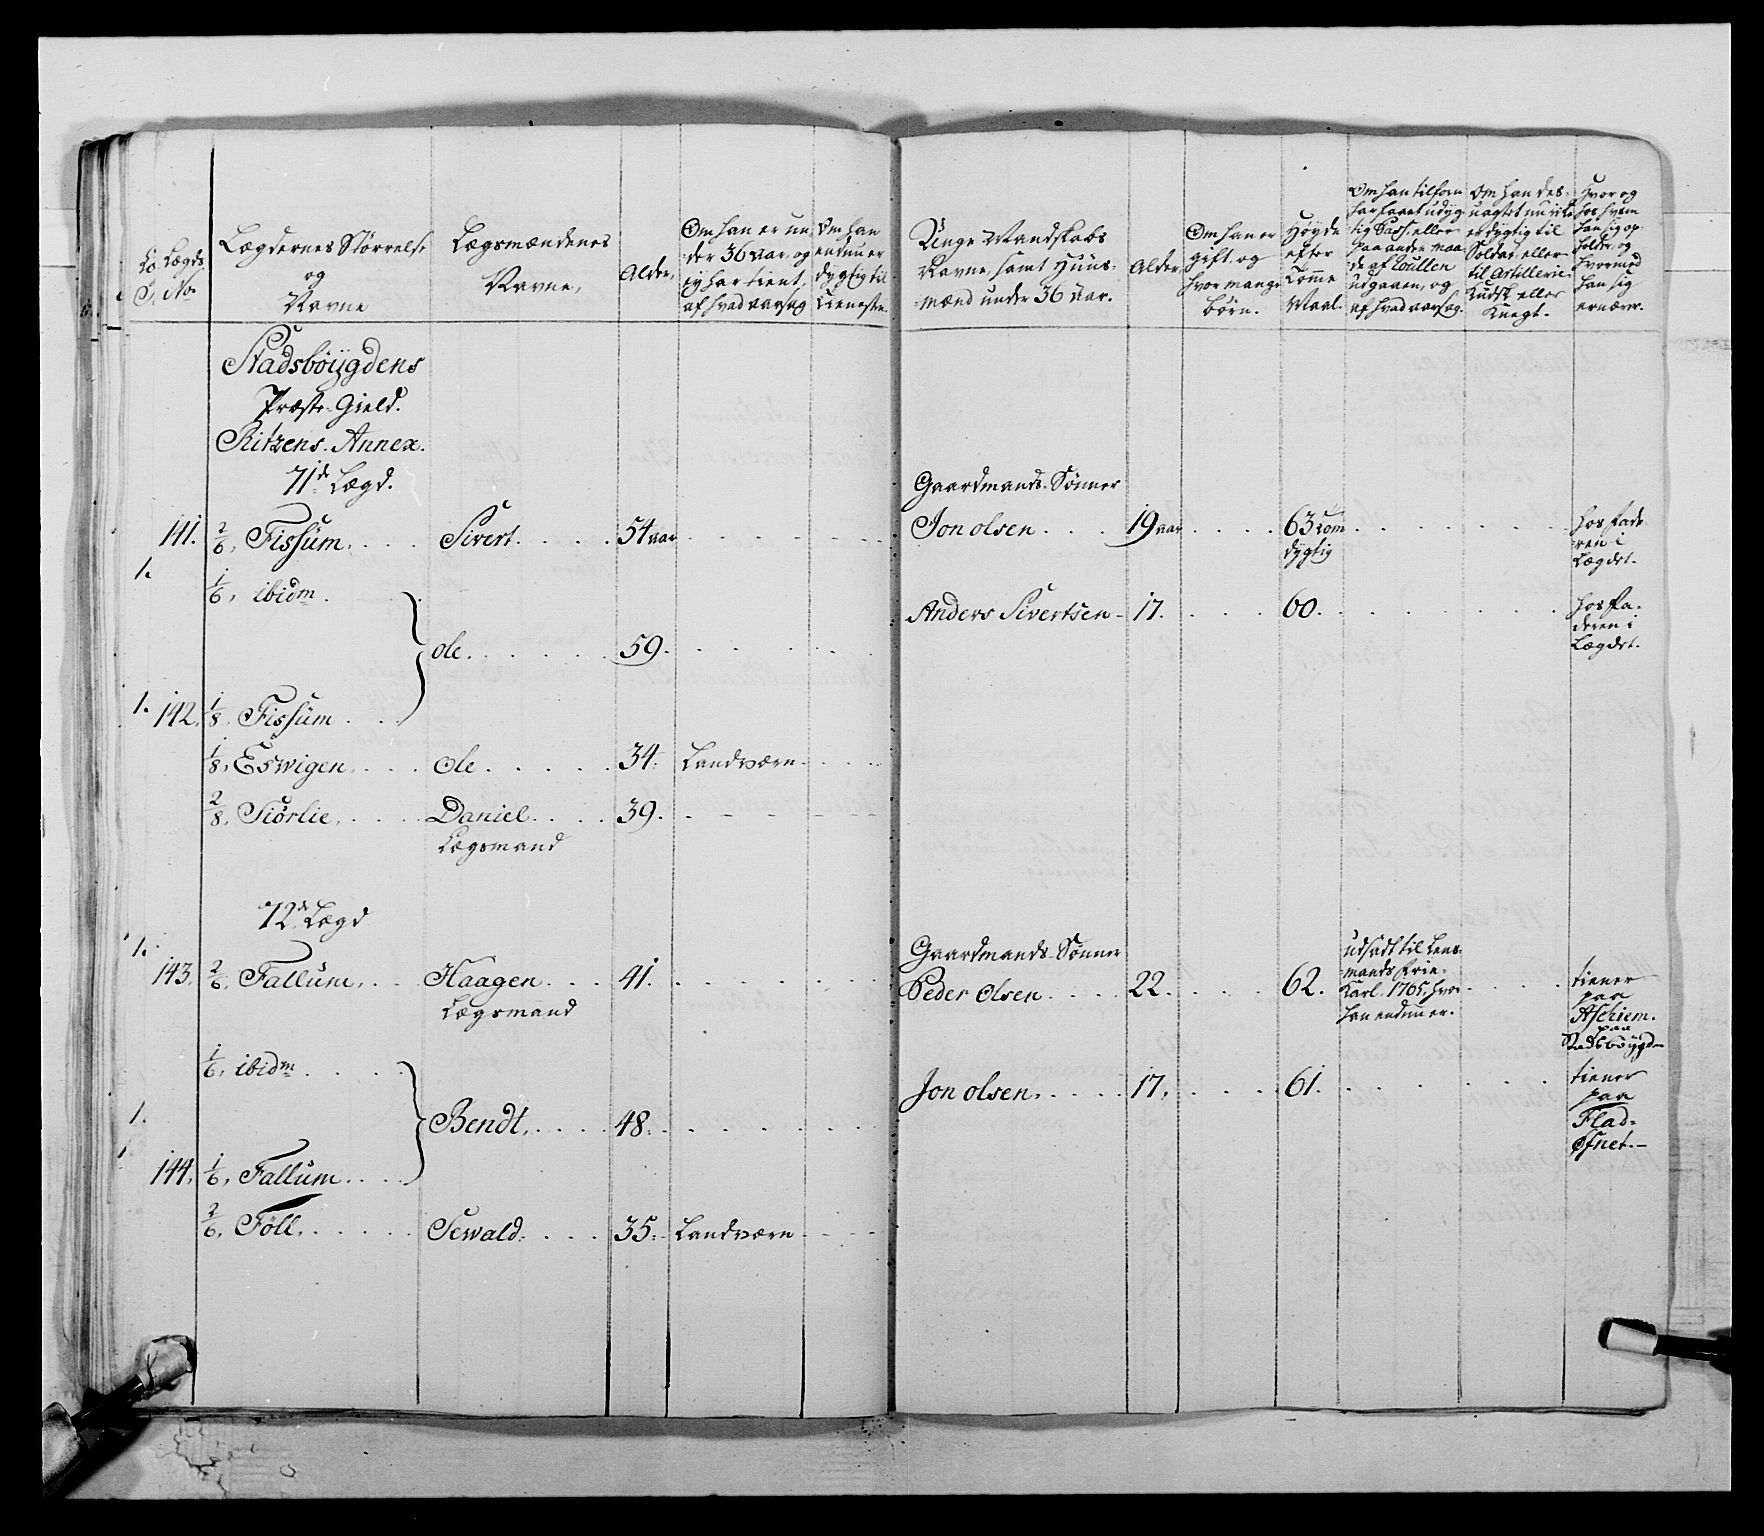 Lægds
No
Lægdernes Størrelse
og
Navne
Lægsmændenes
Navne,
Alder,
Om han er un
der 36 aar, og
ey har tient,
af hvad aarsag
Om han
endnu er
dygtig til
Tieneste.
Unge Mandskabs
Navne, samt Huus-
mænd under 36 aar.
Alder,
Om han er
gift, og
hvor mange
börn.
Høyde
efter
Tomme
Maal.
Om han tilforn
har faaet udyg-
tig Pass, eller
paa anden maa-
de af Rullen
udgaaen, og
af hvad aarsag.
Om han des-
uagtet nu ikke
er dygtig til
Soldat, eller
til Artillerie
Kudsk eller
Knegt.
Hvor og
hos hvem
han sig op-
holder, og
hvormed
han sig
ernærer.
Stadsböÿgdens
Præste-Gield.
Ritzens-Annex.
71de Lægd.
Gaardmands-Sönner
141. 2/6, Fissum. Sivert. 54 aar Jon olsen. 19 aar 63 Tom
dygtig
hos fade-
ren i
Lægdet.
1.
1/6, ibidm. Anders Sivertsen 17. 60.
hos fa-
deren i
Lægdet.
ole. 59.
1. 142. 1/8. Fissum.
1/8, Eswigen. Ole. 34. Landværn.
2/8, Siörlie. Daniel. 39.
Lægsmand
72de Lægd
1.
Gaardmands-Sönner
143. 2/6, Fallum. Haagen. 41. Peder Olsen. 22. 62.
Lægsmand
udsadt til Lens-
mands Frie-
Karl. 1765, hvor
han endnu er.
tiener
paa
Aschiem.
paa
Stadsböÿgden
1/6, ibidm. Jon olsen. 17. 61.
tiener
paa
Flad-
Øfnet.-
1.
Bendt. 48.
144. 1/6, Fallum.
2/6, Föll. Sewald. 35. Landværn